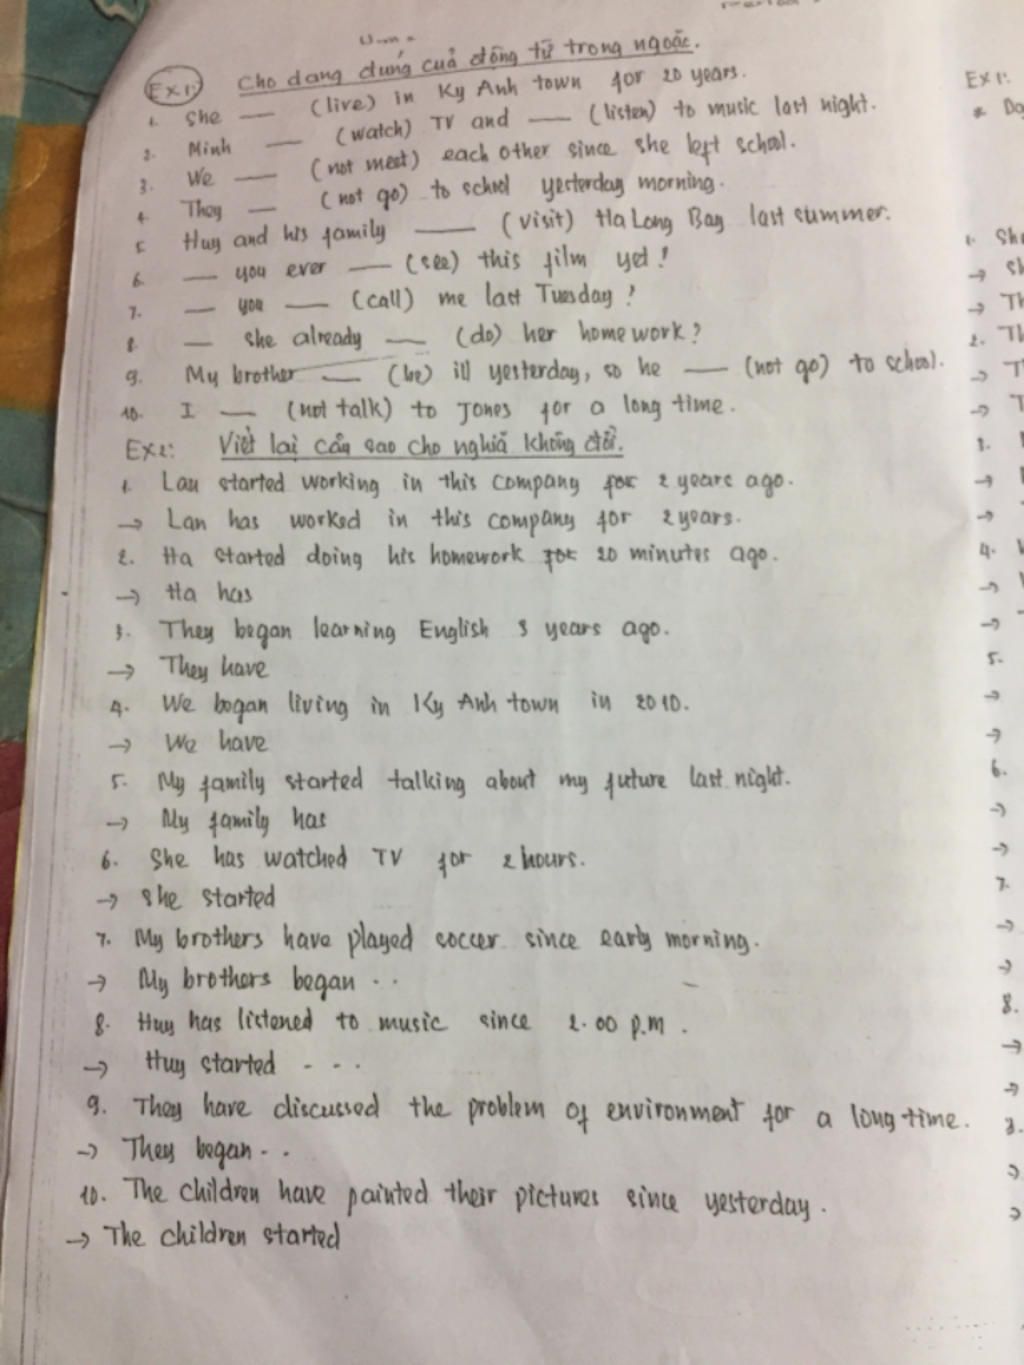 Ex1: Cho dạng đúng của động từ trong ngoặc.
1. She — (live) in Ky Anh town for 20 years.
2. Minh — (watch) TV and — (listen) to music last night.
3. We — (not meet) each other since she left school.
4. They — (not go) to school yesterday morning.
5 Huy and his family — (visit) Ha Long Bay last summer.
6. — you ever — (see) this film yet!
7. — you — (call) me last Tuesday!
8. — she already — (do) her homework?
9. My brother — (be) ill yesterday, so he — (not go) to school.
10. I — (not talk) to Jones for a long time.
Ex2: Viết lại câu sao cho nghĩa không đổi.
1. Lan started working in this company for 2 years ago.
→ Lan has worked in this company for 2 years.
2. Ha started doing his homework for 20 minutes ago.
→ Ha has
3. They began learning English 3 years ago.
→ They have
4. We began living in Ky Anh town in 2010.
→ We have
5. My family started talking about my future last night.
→ My family has
6. She has watched TV for 2 hours.
→ She started
7. My brothers have played soccer since early morning.
→ My brothers began . .
8. Huy has listened to music since 2.00 p.m.
→ Huy started - - .
9. They have discussed the problem of environment for a long time.
→ They began - .
10. The children have painted their pictures since yesterday.
→ The children started
Ex1:
1. She
2.
→
4.
5.
6.
7.
8.